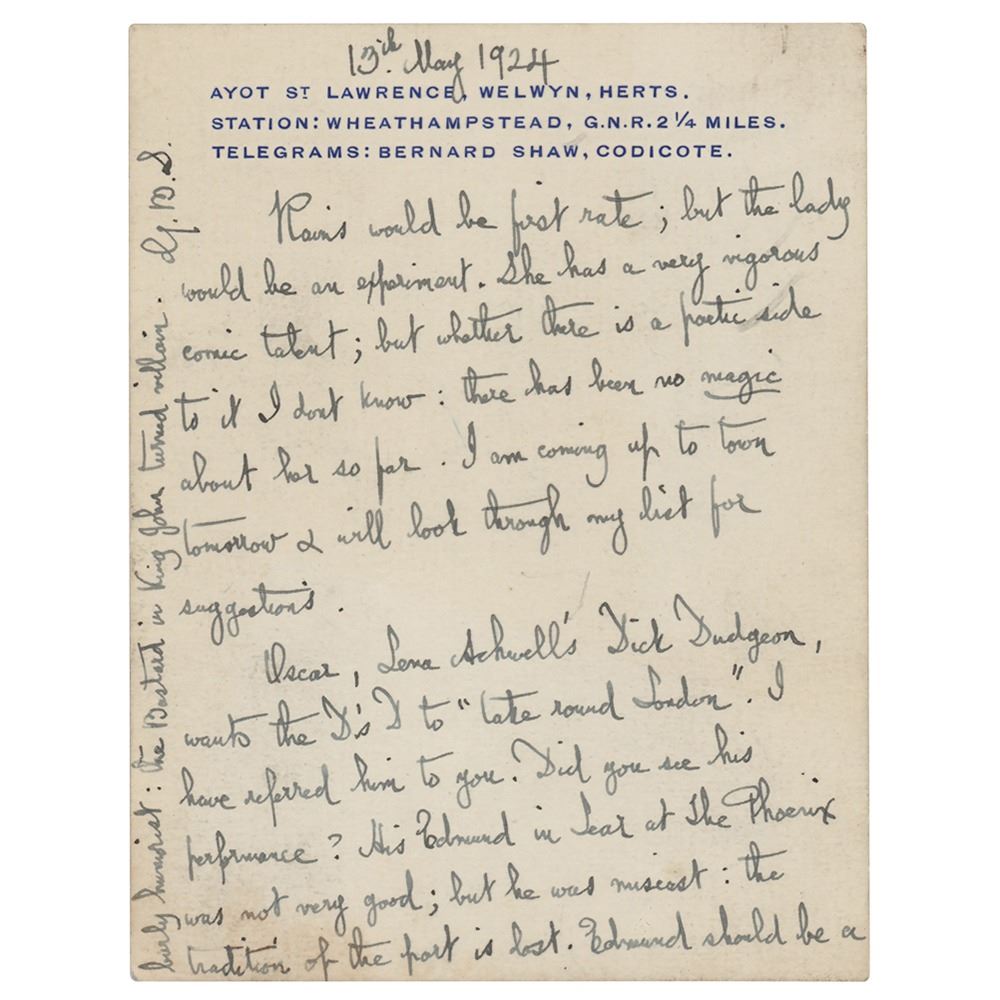 13th. May 1924
AYOT ST LAWRENCE, WELWYN, HERTS.
STATION: WHEATHAMPSTEAD, G.N.R. 2¼ MILES.
TELEGRAMS: BERNARD SHAW, CODICOTE.
Rains would be first rate; but the lady
would be an experiment. She has a very vigorous
comic talent; but whether there is a poetic side
to it I dont know: there has been no magic
about her so far. I am coming up to town
tomorrow & will look through my list for
suggestions.
Oscar, Lena Ashwell's Dick Dudgeon,
wants the D's D to "take round London". I
have referred him to you. Did you see his
performance? His Edmund in Lear at The Phoenix
was not very good; but he was miscast: the
tradition of the part is lost. Edmund should be a
burly humorist: the Bastard in King John turned villain. G.B.S.